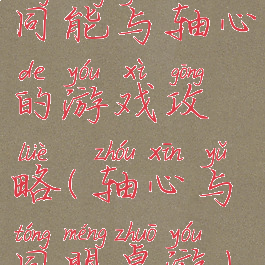 同能与轴心
de yóu xì gōng
的游戏攻
lüè zhóu xīn yǔ
略(轴心与
tóng méng zhuō yóu
同盟桌游)